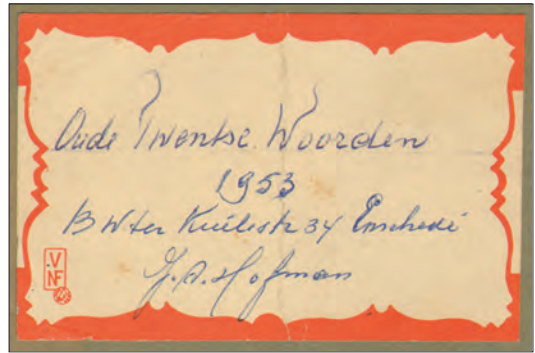 Oude Twentse Woorden
1953
B W ter Kuilestr 34 Enschedé
J. A. Hofman
V
NF